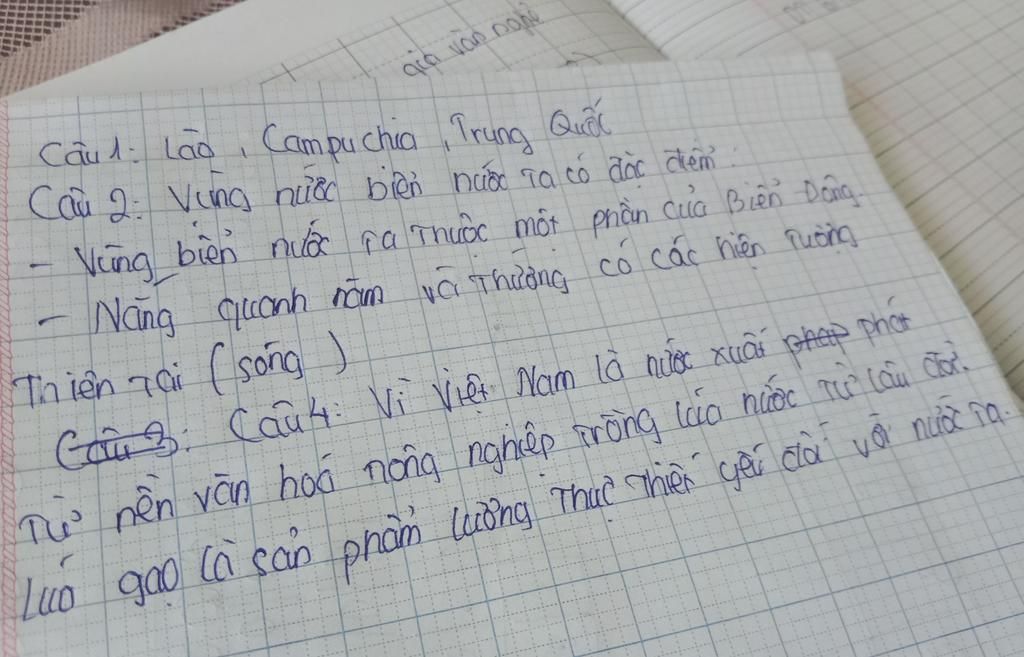 gia văn nghệ
Câu 1: Lào, Campuchia, Trung Quốc
Câu 2: Vùng nước biển nước ta có đặc điểm:
- Vùng biển nước ta thuộc một phần của Biển Đông.
- Nắng quanh năm và thường có các hiện tường
Thiên tai (sóng)
Câu 3: Câu 4: Vì Việt Nam là nước xuất phap phát
Từ nền văn hoá nông nghiệp trồng lúa nước từ lâu đời.
Lúa gạo là sản phẩm lường thực thiết yếu đối với nước ta.